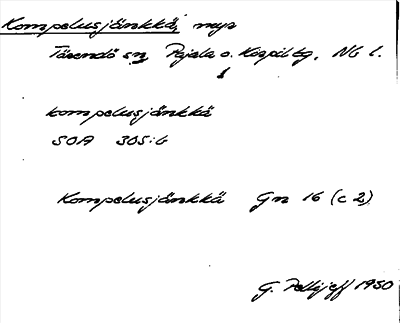 Kompelusjänkkä, myr
Tärendö sn Pajala o. Korpil. tg, Nb l.
kompelusjänkkä
SOA 305:6
Kompelusjänkkä Gn 16 (c 2)
G. Pellijeff 1980